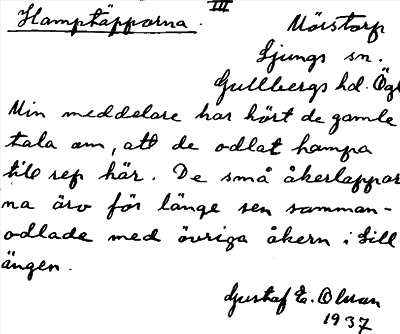 III
Hamptäpporna. Mörstorp
Ljungs sn.
Gullbergs hd. Ögl
Min meddelare har hört de gamle
tala om, att de odlat hampa
till rep här. De små åkerlappar
na äro för länge sen samman-
odlade med övriga åkern i Lill
ängen.
Gustaf E. Olsson
1937